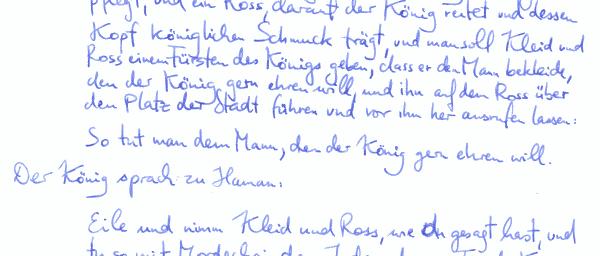 pflegt, und ein Ross, darauf der König reitet und dessen
Kopf königlichen Schmuck trägt, und man soll Kleid und
Ross einem Fürsten des Königs geben, dass er den Mann bekleide,
den der König gern ehren will, und ihn auf dem Ross über
den Platz der Stadt führen und vor ihm her ausrufen lassen:
So tut man dem Mann, den der König gern ehren will.
Der König sprach zu Haman:
Eile und nimm Kleid und Ross, wie du gesagt hast, und
tu so mit Mordechai, dem